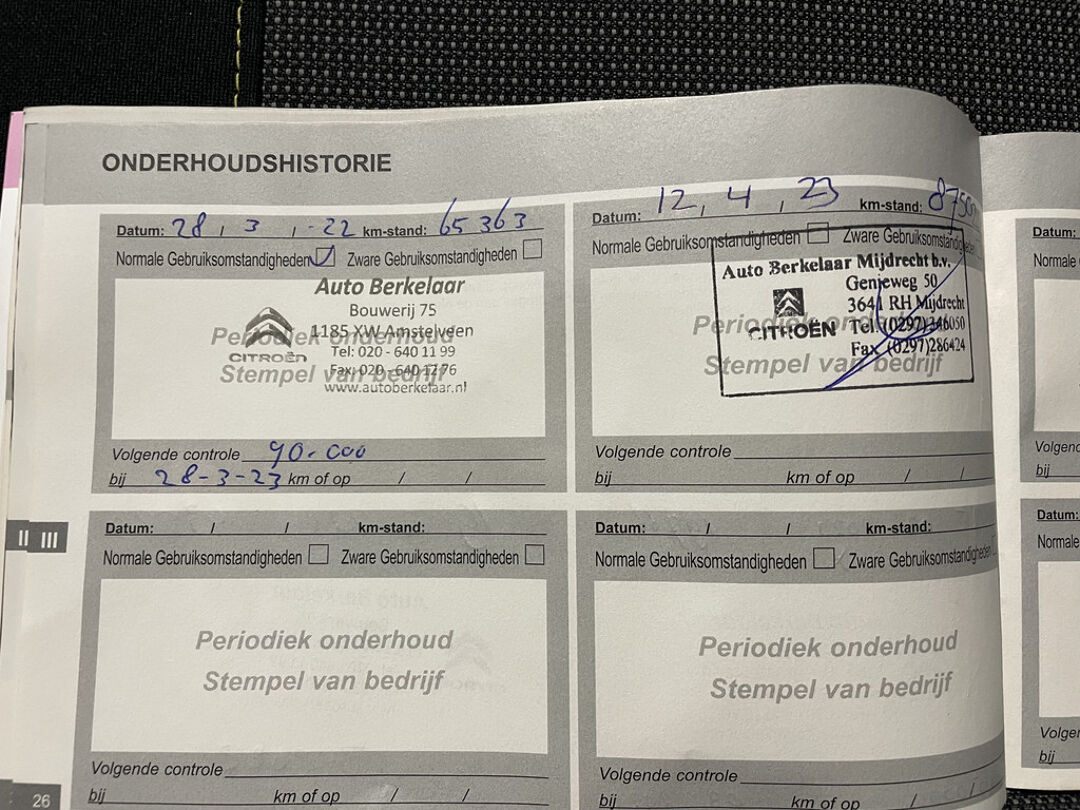 ONDERHOUDSHISTORIE
Datum: 28 / 3 / -22 km-stand: 65363
Normale Gebruiksomstandigheden Zware Gebruiksomstandigheden
Auto Berkelaar
Bouwerij 75
Periodiek onderhoud
1185 XW Amstelveen
CITROËN
Tel: 020 - 640 11 99
Stempel van bedrijf
Fax: 020 - 640 12 76
www.autoberkelaar.nl
Volgende controle 90.000
bij 28-3-23 km of op / /
Datum: 12, 4, 23 km-stand:
Normale Gebruiksomstandigheden Zware Gebruiksomstandigheden
Auto Berkelaar Mijdrecht b.v.
Genieweg 50
3641 RH Mijdrecht
Periodiek onderhoud
CITROËN
Tel. (0297)346050
Fax (0297)286424
Stempel van bedrijf
Volgende controle
bij km of op / /
Datum: / / km-stand:
Normale Gebruiksomstandigheden Zware Gebruiksomstandigheden
Periodiek onderhoud
Stempel van bedrijf
Volgende controle
bij km of op / /
Datum: / / km-stand:
Normale Gebruiksomstandigheden Zware Gebruiksomstandigheden
Periodiek onderhoud
Stempel van bedrijf
Volgende controle
bij km of op / /
II III
26
Datum:
Normale
Volgende
bij
Datum:
Normale
bij